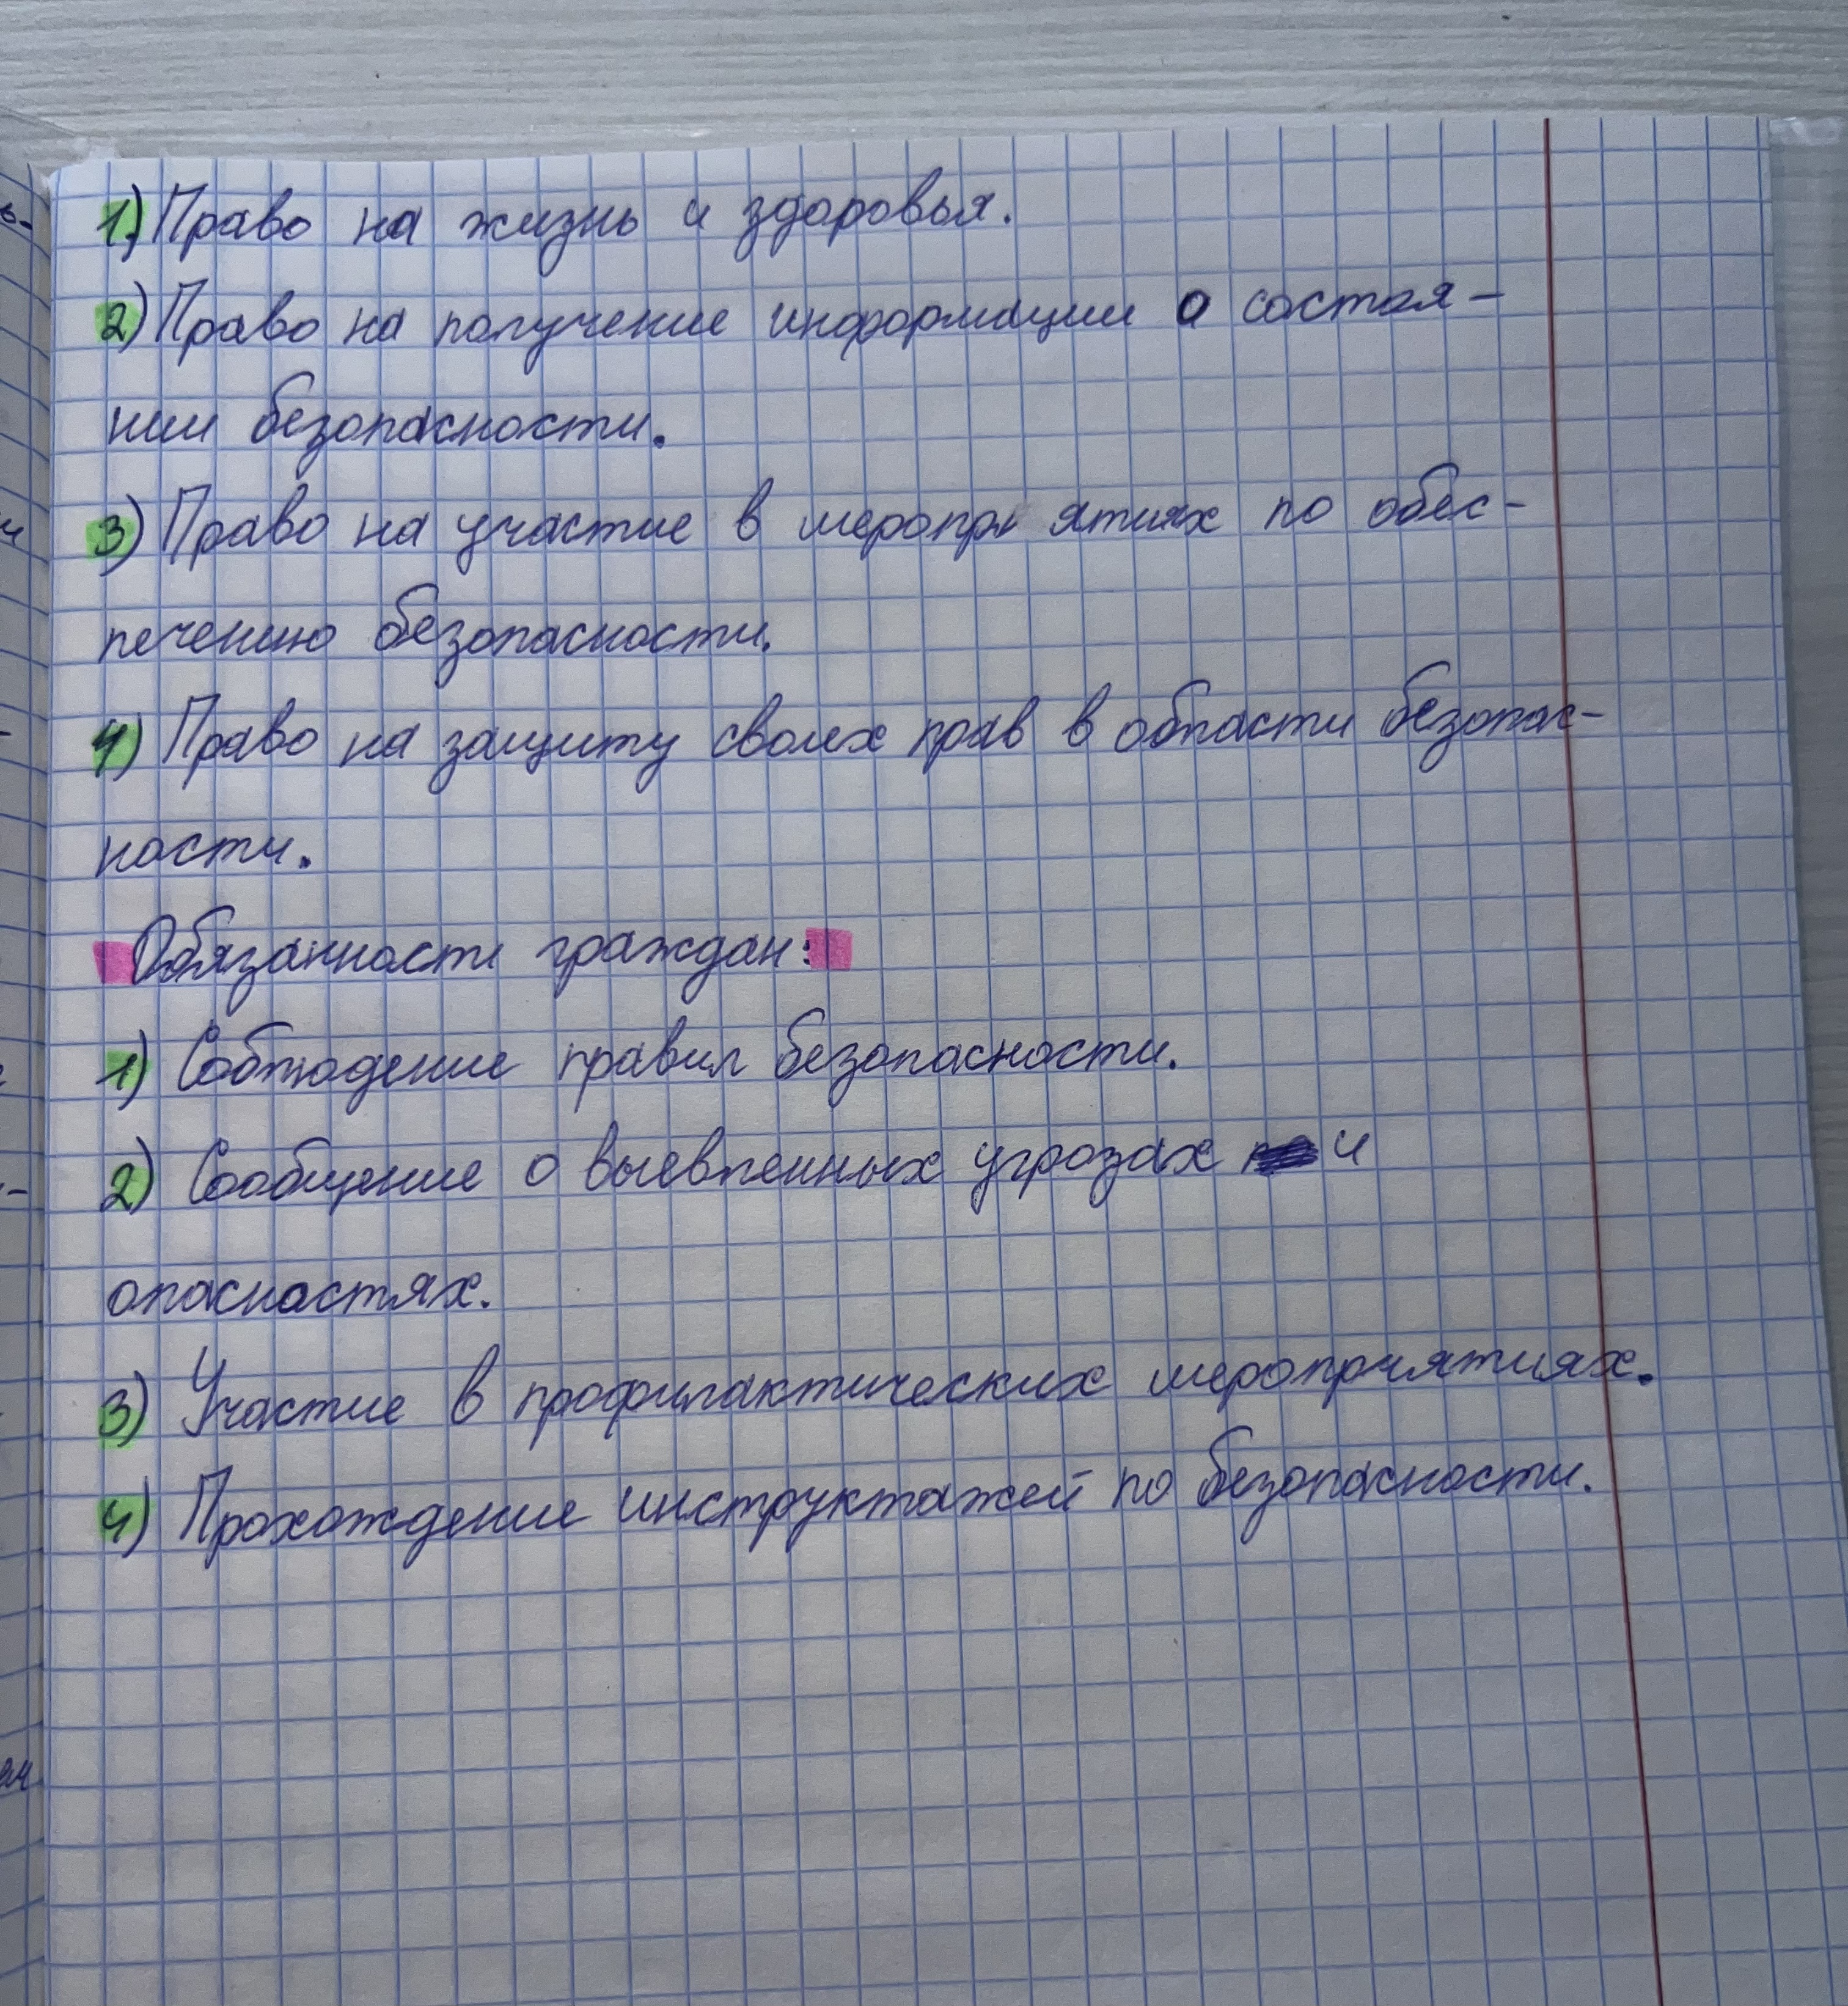 1) Право на жизнь и здоровья.
2) Право на получение информации о состоя-
нии безопасности.
3) Право на участие в меропри ятиях по обес-
печению безопасности.
4) Право на защиту своих прав в области безопас-
ности.
Обязанности граждан:
1) Соблюдение правил безопасности.
2) Сообщение о выевленных угрозах и
опасностях.
3) Участие в профилактических мероприятиях.
4) Прохождение инструктажей по безопасности.